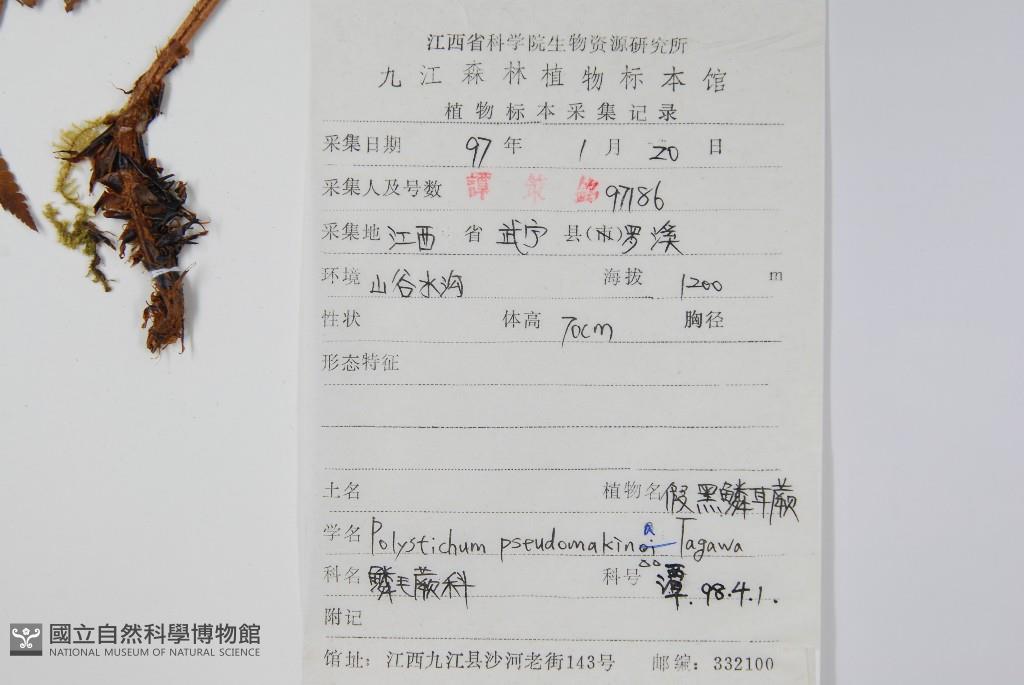 江西省科学院生物资源研究所
九江森林植物标本馆
植物标本采集记录
采集日期 97 年 1 月 20 日
采集人及号数 譚策銘 97186
采集地 江西 省 武宁 县(市) 罗溪
环境 山谷水沟 海拔 1200 m
性状 体高 70cm 胸径
形态特征
土名 植物名 假黑鳞耳蕨
学名 Polystichum pseudomakinoi Tagawa
科名 鳞毛蕨科 科号 潭. 98.4.1.
附记
馆址：江西九江县沙河老街143号 邮编：332100
國立自然科學博物館
NATIONAL MUSEUM OF NATURAL SCIENCE